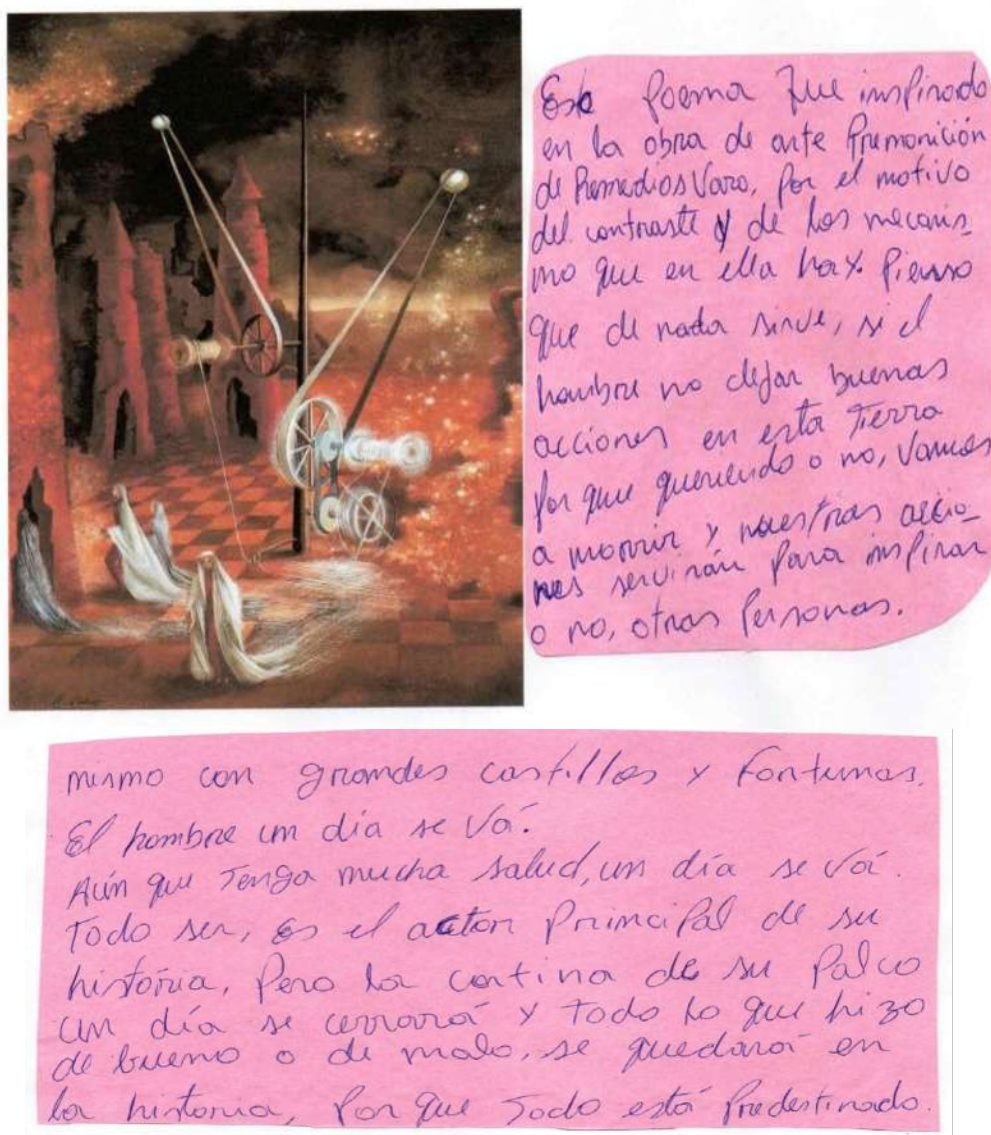 Este poema fue inspirado
en la obra de arte Premonición
de Remedios Varo, por el motivo
del contraste y de los mecanis_
mo que en ella hay. Pienso
que de nada sirve, si el
hombre no dejar buenas
acciones en esta Tierra
por que queriendo o no, vamos
a morrir y nuestras accio_
nes servirán para inspirar
o no, otras personas.
mismo con grandes castillos y fortunas.
El hombre un día se vá.
Aún que Tenga mucha salud, un día se vá.
Todo ser, es el actor principal de su
história, pero la cortina de su palco
un día se cerrará y todo lo que hizo
de bueno o de malo, se quedará en
la historia, por que Todo está predestinado.